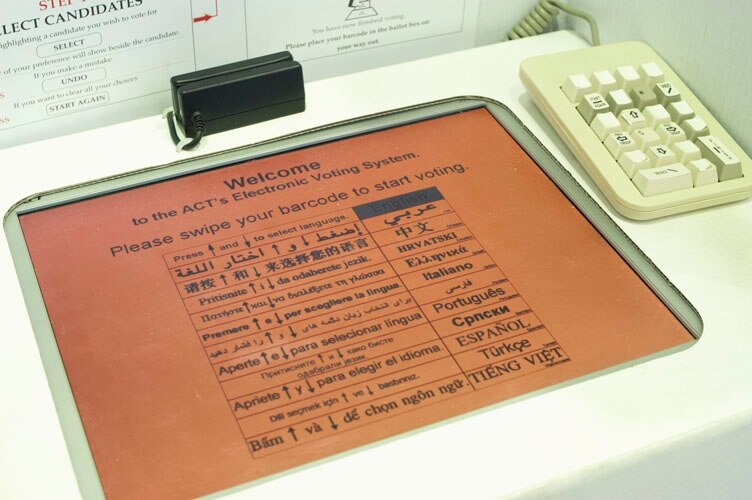 SELECT CANDIDATES
highlighting a candidate you wish to vote for
SELECT
of your preference will show beside the candidate.
If you make a mistake
UNDO
If you want to clear all your choices
START AGAIN
You have now finished voting.
Please place your barcode in the ballot box on
your way out.
Welcome
to the ACT's Electronic Voting System.
Please swipe your barcode to start voting.
Press ↑ and ↓ to select language. English
إضغط ↓ و ↑ اختار اللغة عربي
请按 ↑ 和 ↓ 来选择您的语言 中文
Pritisnite ↑ i ↓ da odaberete jezik. HRVATSKI
Πατήστε ↑ και ↓ να διαλέξετε τη γλώσσα Ελληνικά
Premere ↑ e ↓ per scegliere la lingua Italiano
برای انتخاب زبان تكمه های ↓ و ↑ را فشار دهید فارسی
Aperte ↑ e ↓ para selecionar língua Português
Притисните ↑ и ↓ како бисте
одабрали језик Српски
Apriete ↑ y ↓ para elegir el idioma. ESPAÑOL
Dili seçmek için ↑ ve ↓ bastırınız. Türkçe
Bấm ↑ và ↓ để chọn ngôn ngữ TIẾNG VIỆT
START
AGAIN
UNDO
SELECT